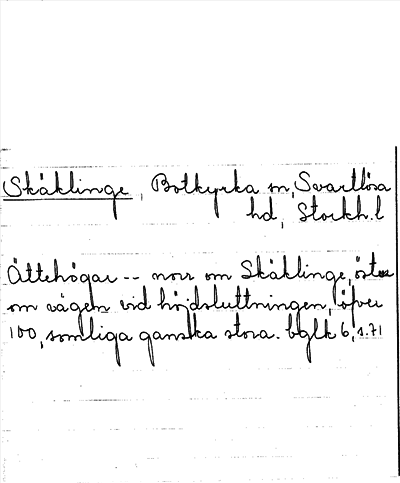 Skäklinge, Botkyrka sn, Svartlösa
hd, Stockh. l
Ättehögar -- norr om Skäklinge, öster
om vägen vid höjdsluttningen, öfver
100, somliga ganska stora. bglk 6, s. 71